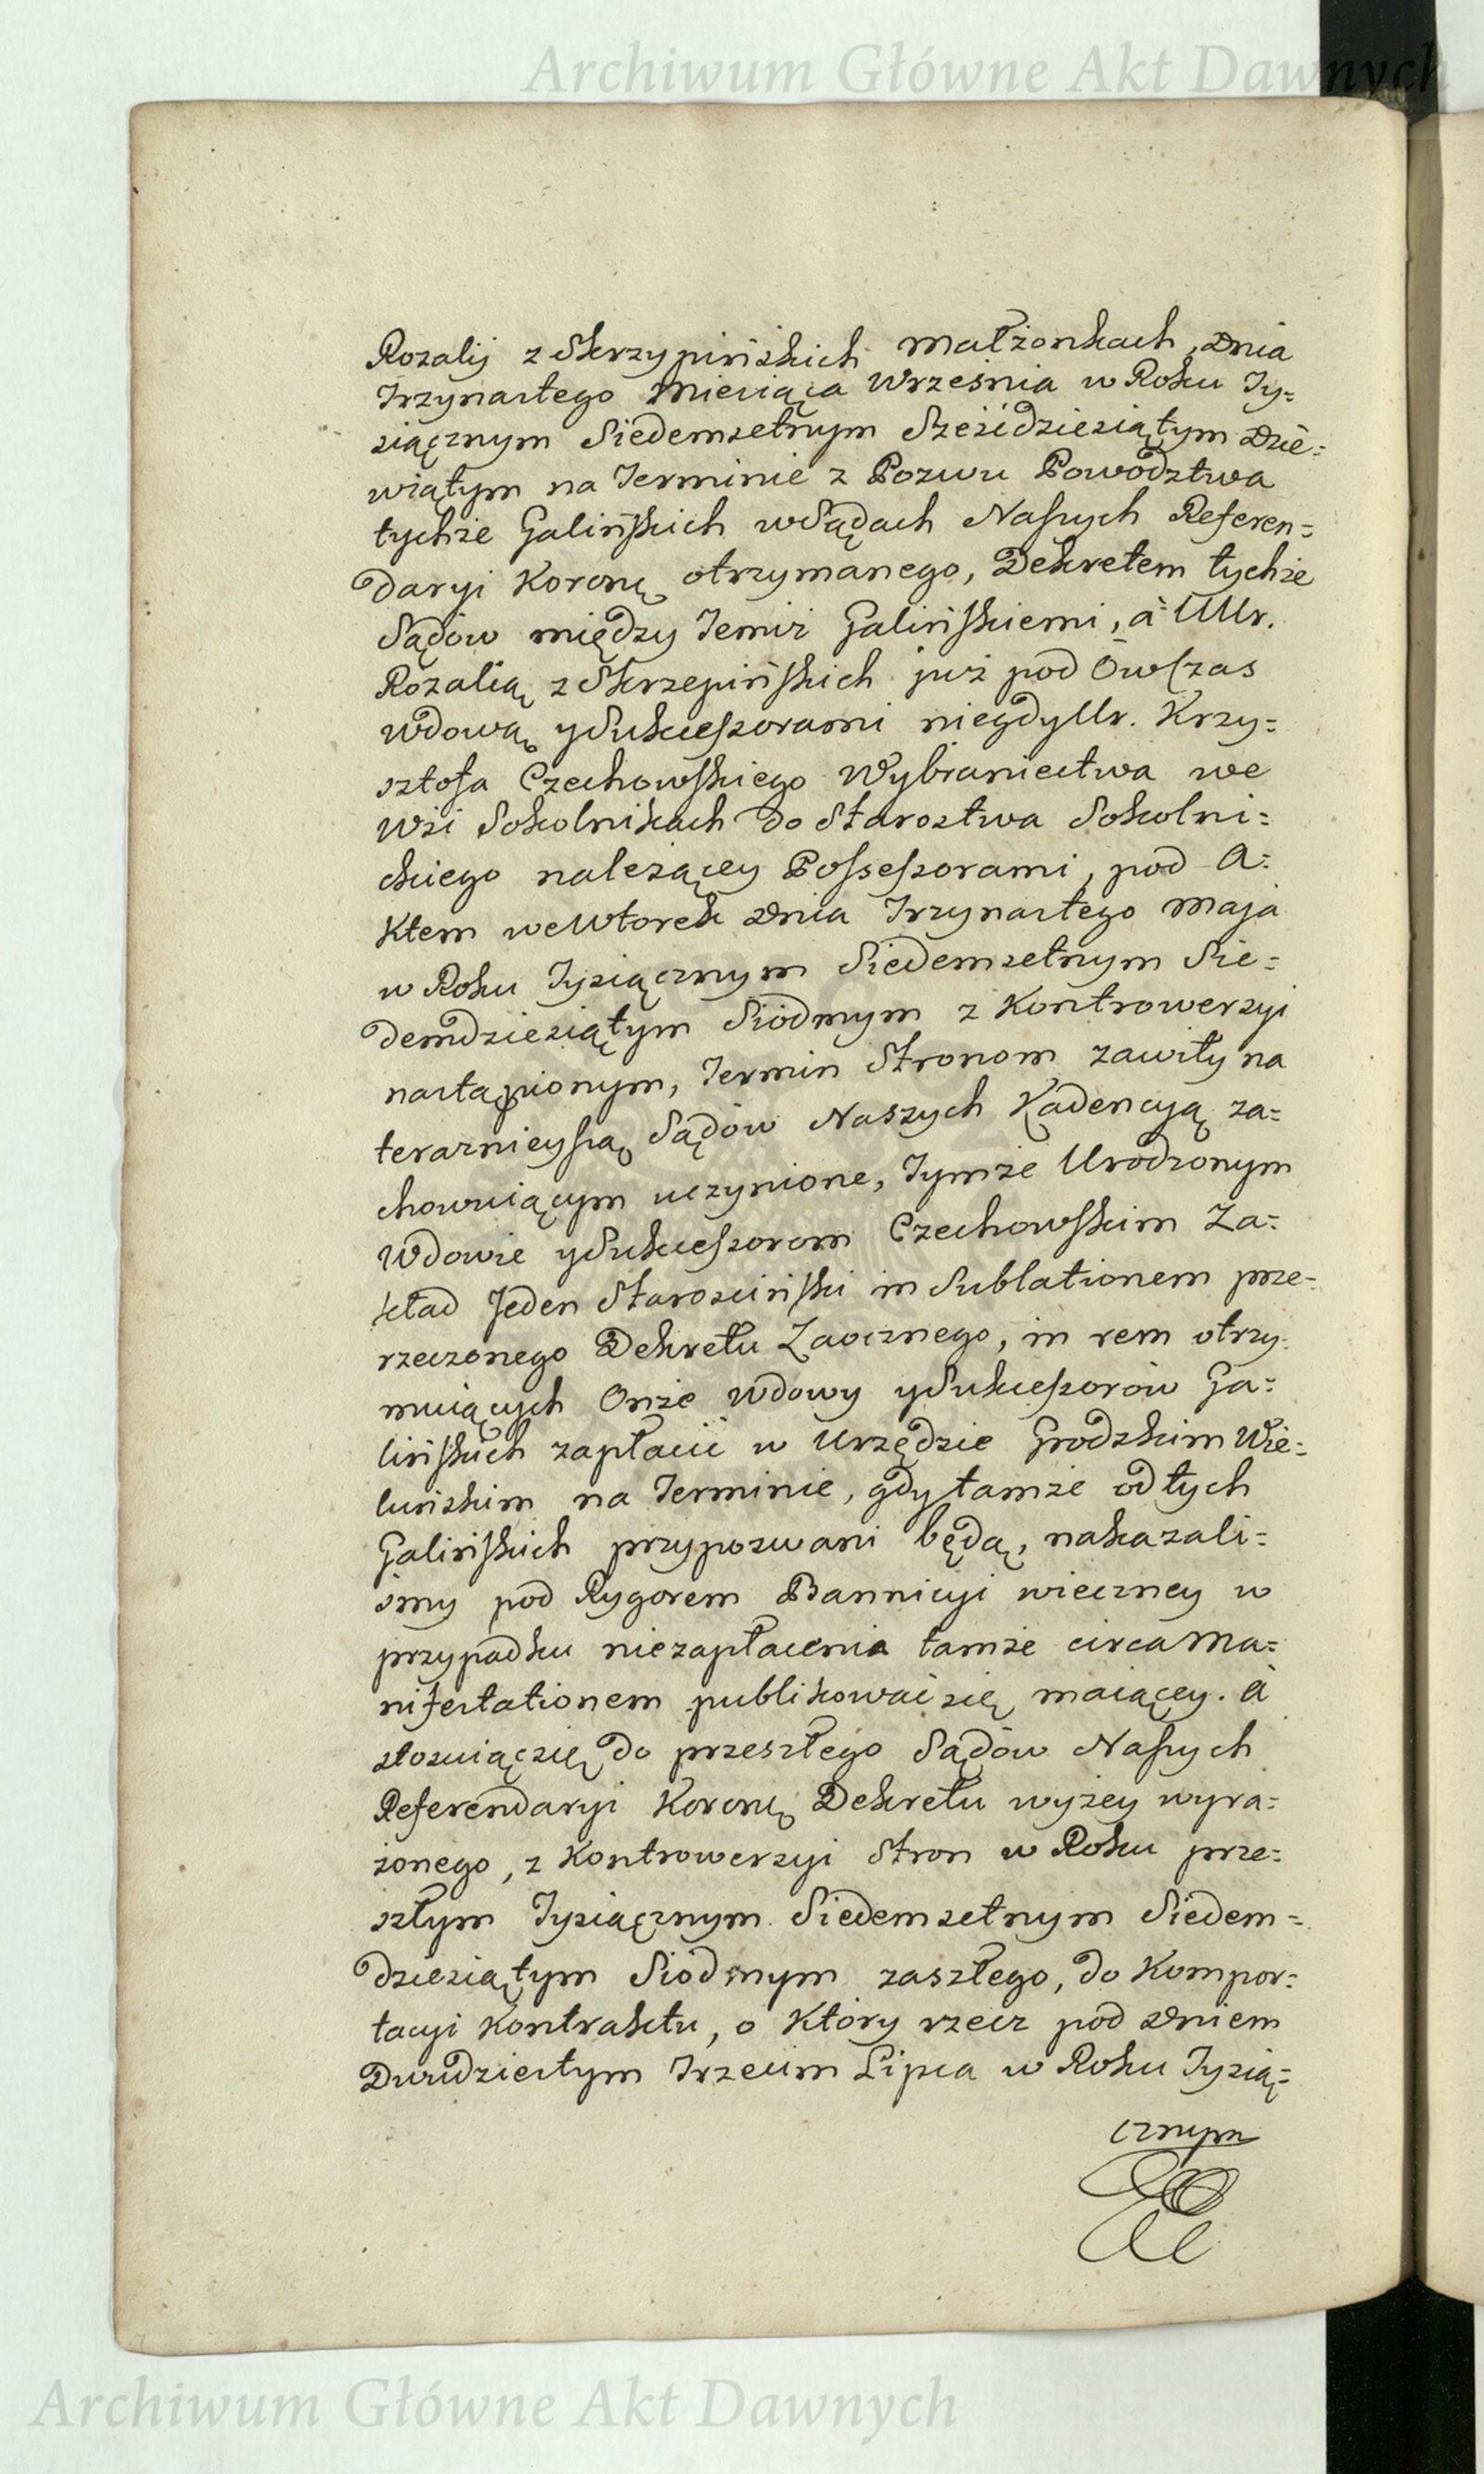 Archiwum Główne Akt Dawnych
Rozalij z Skrzypińskich Małżonkach, Dnia
Trzynastego Miesiąca Września w Roku Ty=
siącznym Siedemsetnym Sześćdziesiątym Dzie=
wiątym na Terminie z Pozwu Powodztwa
tychże Galińskich w Sądach Naszych Referen=
daryi Koronę otrzymanego, Dekretem tychże
Sądów między Temiż Galińskiemi, à UUr.
Rozalią z Skrzepińskich już pod Owczas
Wdową y Sukcessorami niegdy Ur. Krzy=
sztofa Czechowskiego Wybraniectwa we
Wsi Sokolnikach do Starostwa Sokolni=
ckiego należącey Possessorami, pod A=
Ktem we Wtorek Dnia Trzynastego Maja
w Roku Tysiącznym Siedemsetnym Sie=
demdziesiątym Siódmym z Kontrowersyi
nastąpionym, Termin Stronom zawity na
terazniejszą Sądów Naszych Kadencyą za=
chowuiącym uczynione, Tymże Urodzonym
Wdowie y Sukcessorom Czechowskim Za=
kład Jeden Starosciński in Sublationem prze=
rzeczonego Dekretu Zaocznego, in rem otrzy=
muiących Onże Wdowy y Sukcessorów Ga=
lińskich zapłacić w Urzędzie Grodzkim Wie=
luńskim na Terminie, gdy tamże od tych
Galińskich przypozwani będą, nakazali=
smy pod Rygorem Bannicyi wieczney w
przypadku niezapłacenia tamże circa Ma=
nifestationem publikować się maiącey. à
stosuiąc się do przeszłego Sądów Naszych
Referendaryi Koronę Dekretu wyżey wyra=
żonego, z Kontrowersyi Stron w Roku prze=
szłym Tysiącznym Siedemsetnym Siedem=
dziesiątym Siódmym zaszłego, do Kompor=
tacyi Kontraktu, o Który rzecz pod Dniem
Dwudziestym Trzecim Lipca w Roku Tysią=
cznym
Archiwum Główne Akt Dawnych